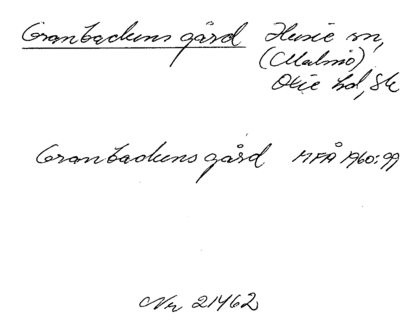 Granbackens gård Husie sn,
(Malmö)
Oxie hd, Sk
Granbackens gård MFÅ 1960:99
Nr 21462